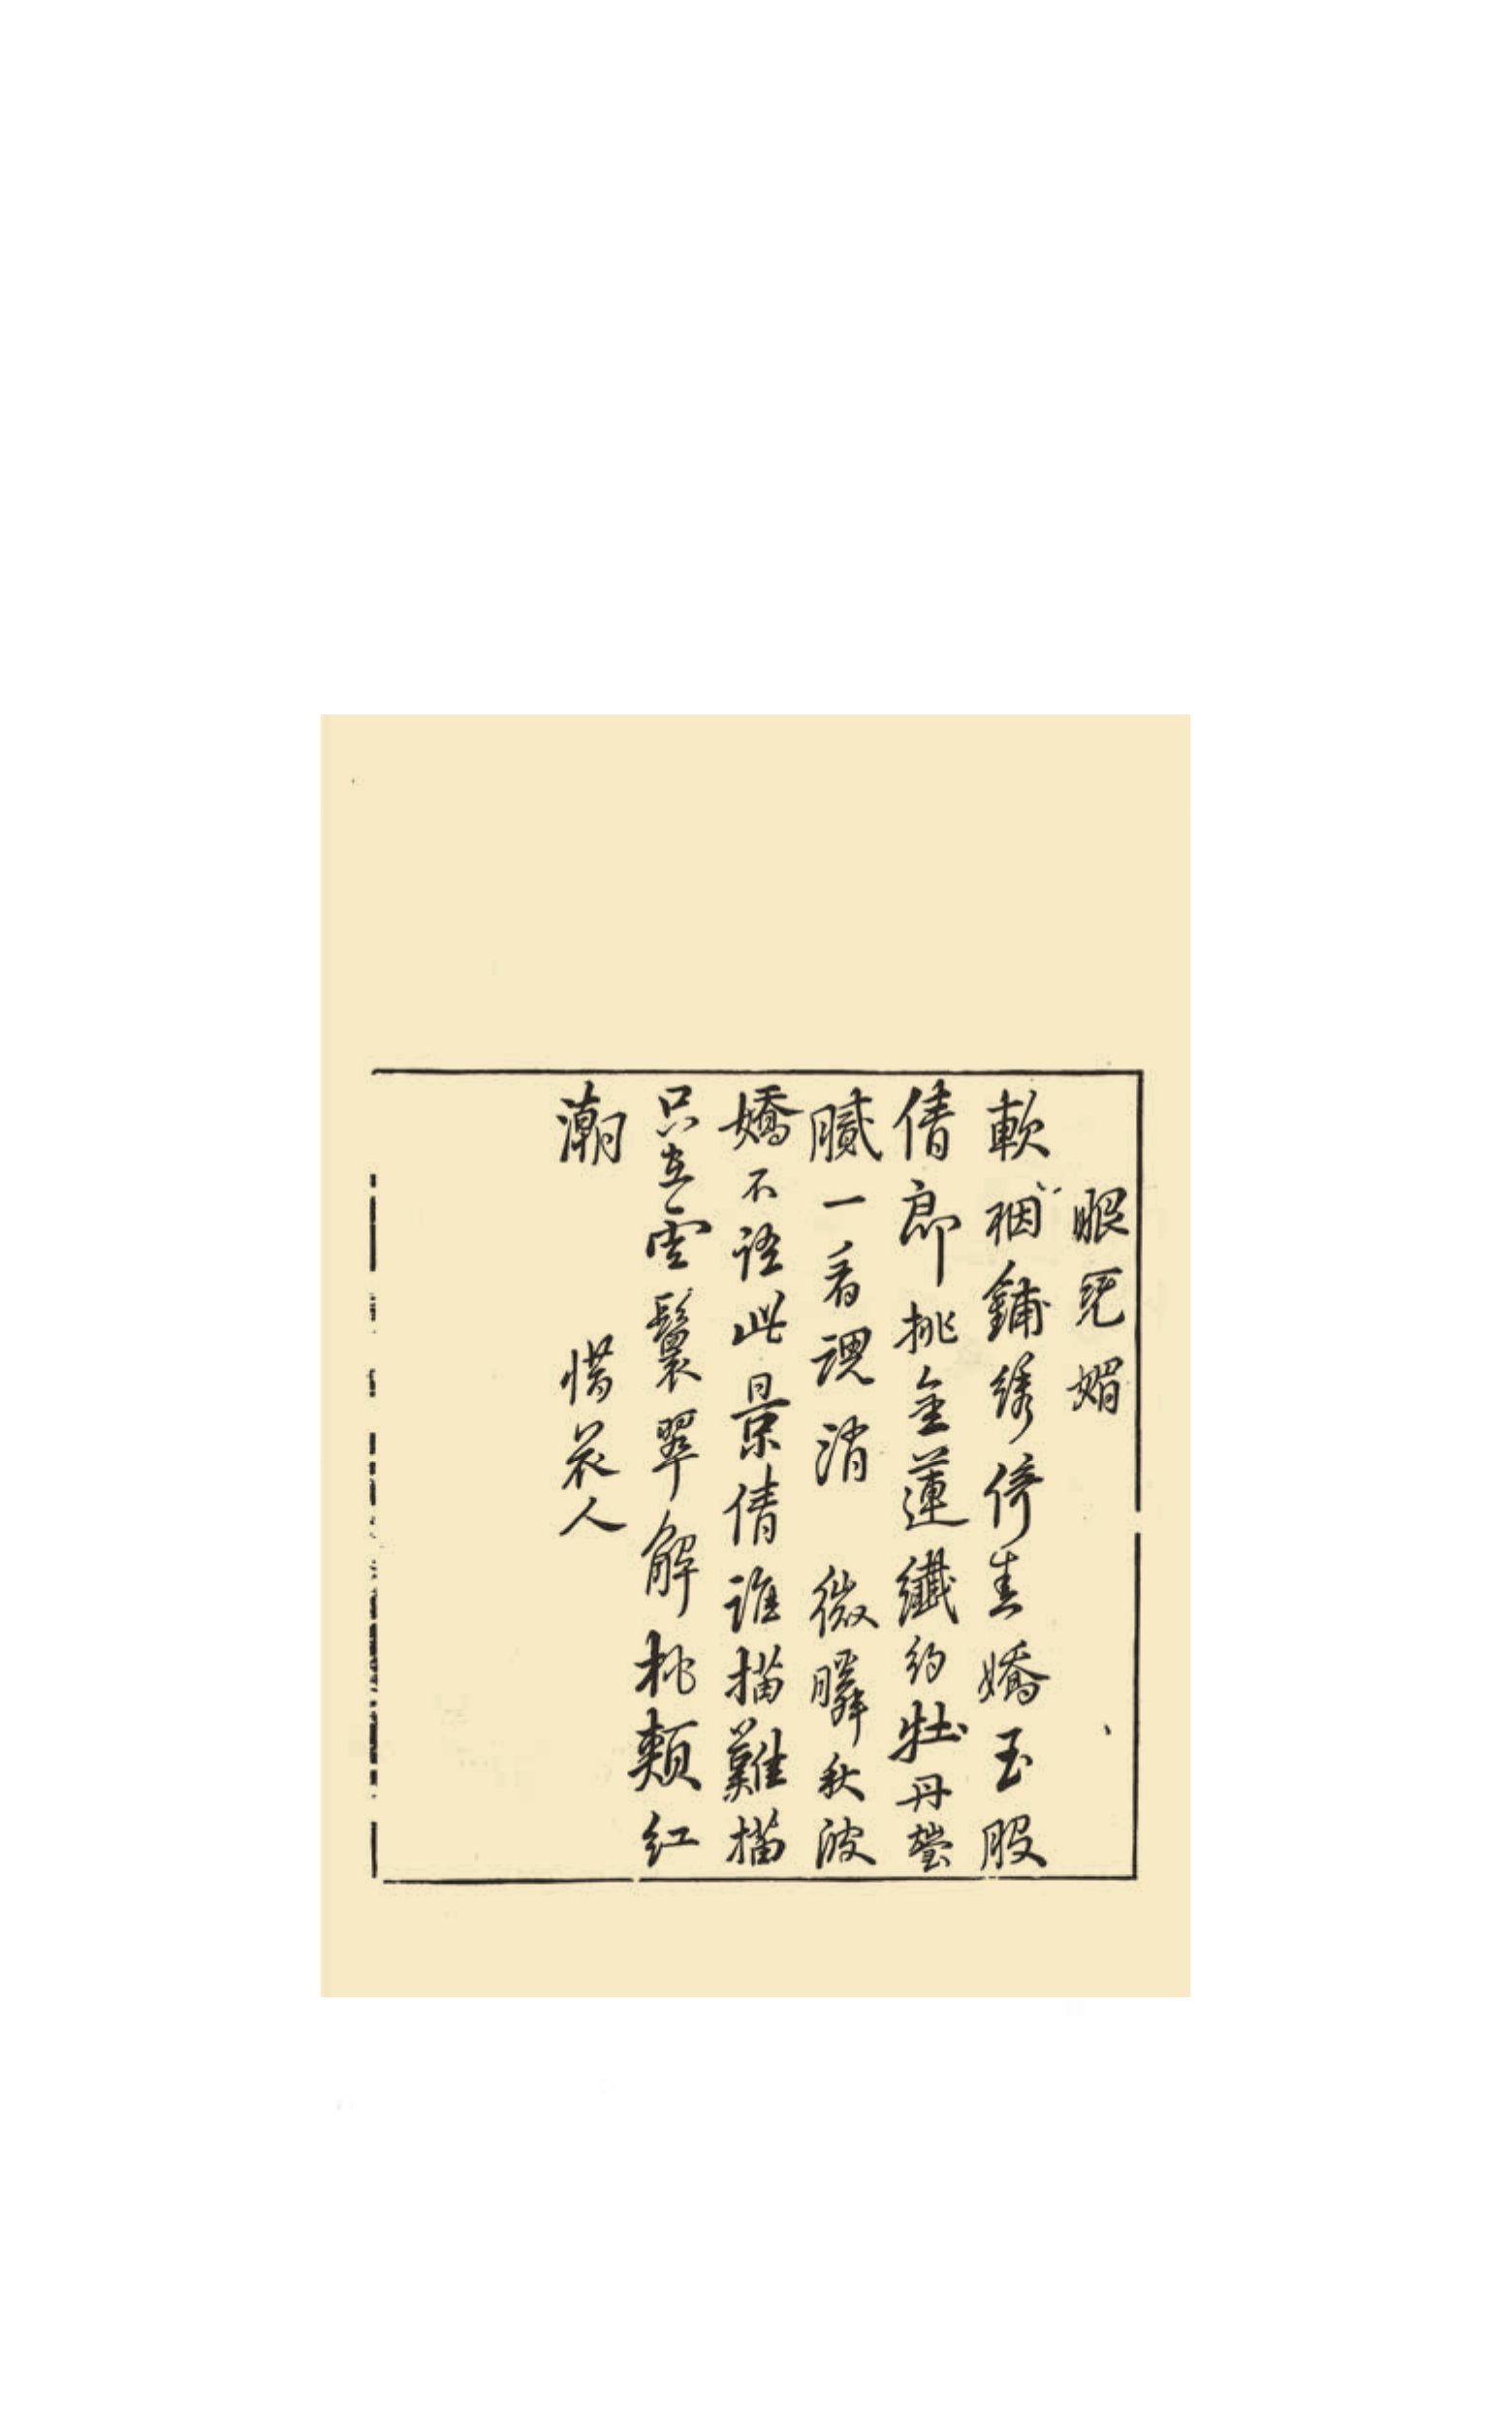 眼児媚
軟裀鋪綉倚春嬌玉股
倩郎挑金蓮纖約牡丹瑩
膩一看魂消　微瞬秋波
嬌不語此景倩誰描難描
只在雲鬟翠解桃頰紅
潮　惜花人